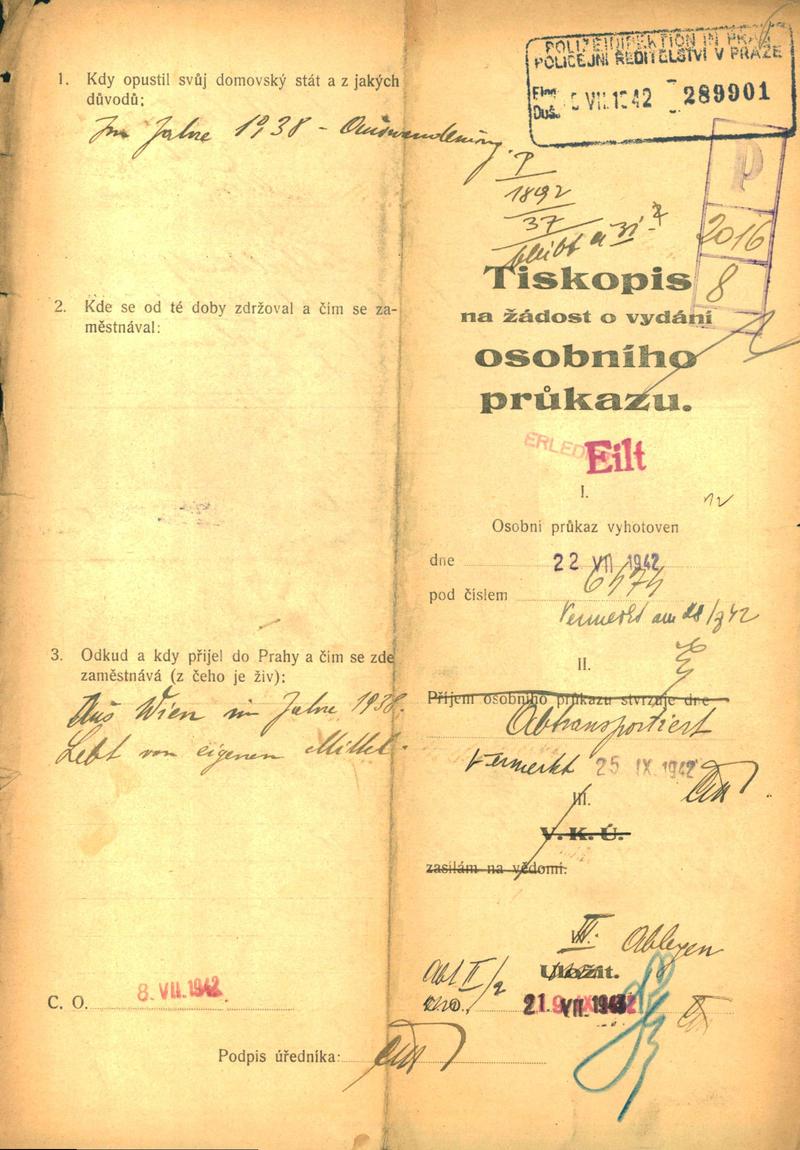 1. Kdy opustil svůj domovský stát a z jakých
důvodů:
Im Jahre 1938 - Auswanderung.
2. Kde se od té doby zdržoval a čím se za-
městnával:
3. Odkud a kdy přijel do Prahy a čim se zde
zaměstnává (z čeho je živ):
Aus Wien im Jahre 1938.
Lebt von eigenen Mittel.
C. O. 8. VII. 1942
Podpis úředníka:
POLIZEIDIREKTION IN PRAG
POLICEJNÍ ŘEDITELSTVÍ V PRAZE
Eing.
Doš. VII. 1942 289901
P
1892
37
bleibt
P
2016
8
Tiskopis
na žádost o vydání
osobního
průkazu.
Eilt
I.
Osobní průkaz vyhotoven
dne 22 VII 1942
pod číslem
Vermerkt am
II.
Příjem osobního průkazu stvrzuje dne
Abtransportiert
Vermerkt 25 IX. 1942
III.
V. K. Ú.
zasílám na vědomí.
III. Ablegen
Abt II/2 Uložit.